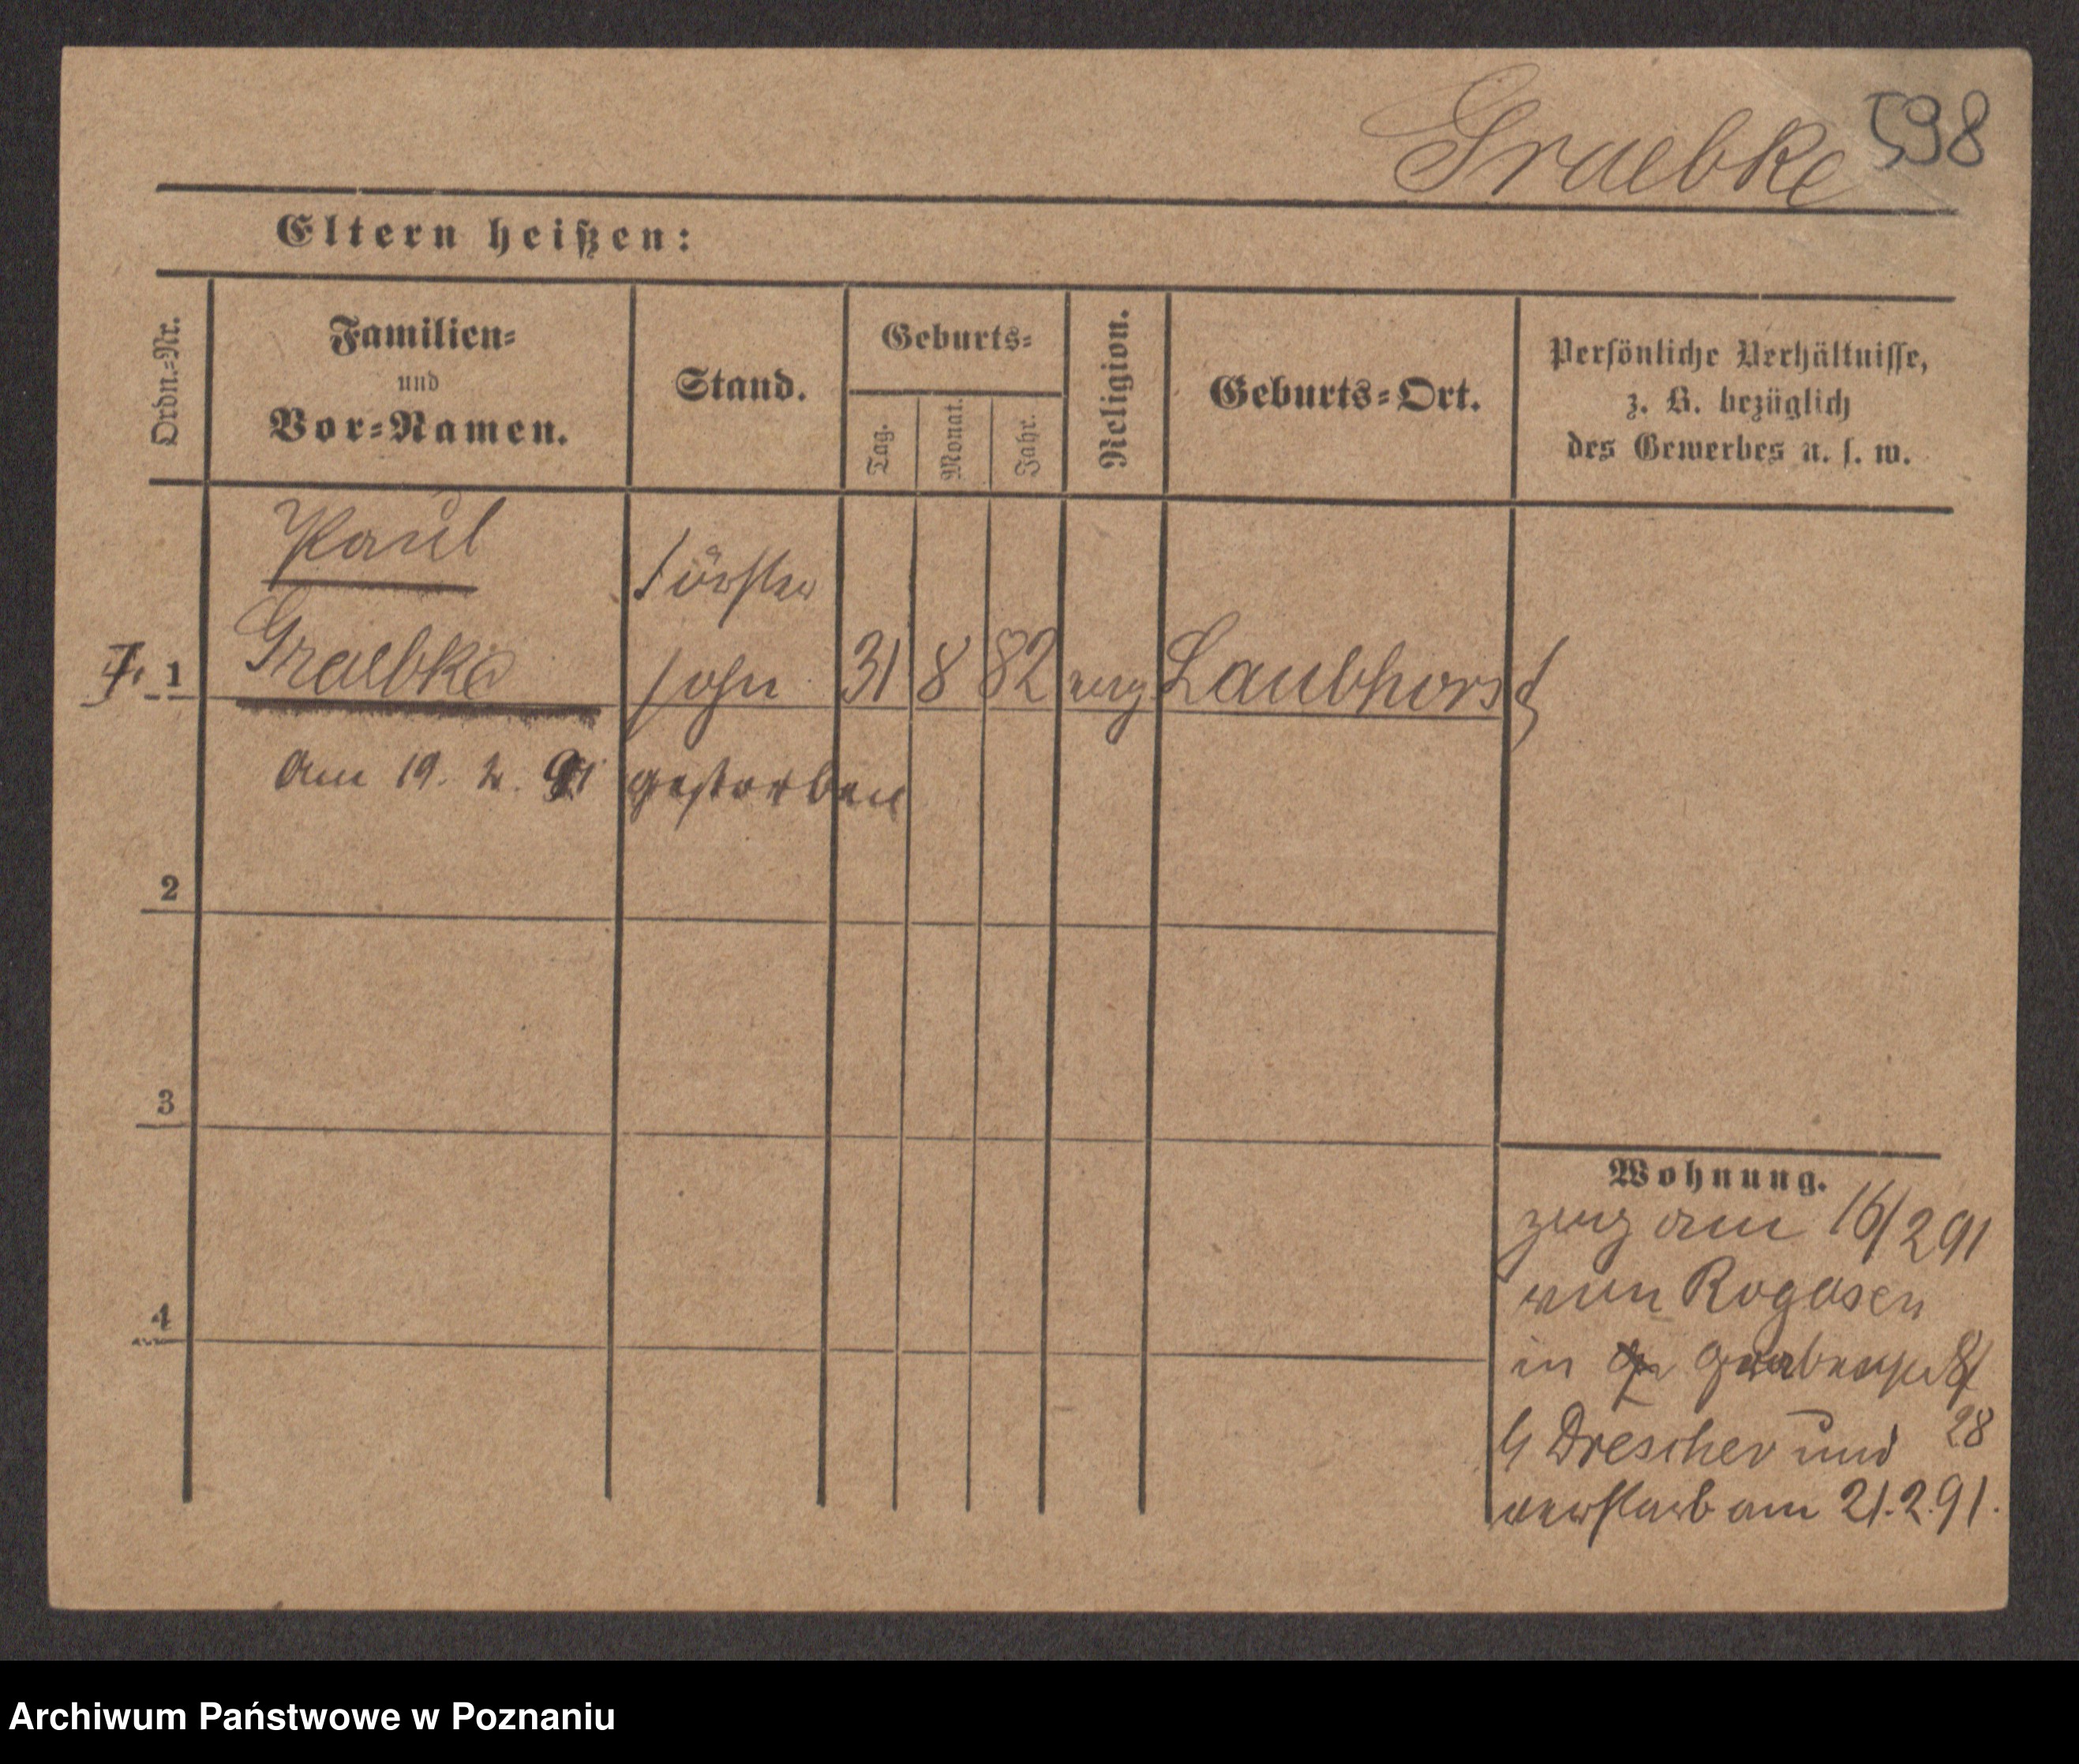 Graebke 598
Eltern heißen:
Ordn.=Nr.
Familien=
und
Vor=Namen.
Stand.
Geburts=
Tag.
Monat.
Jahr.
Religion.
Geburts=Ort.
Persönliche Verhältnisse,
z. B. bezüglich
des Gewerbes u. s. w.
Paul
Förster
1 Graebke sohn 31 8 82 evg Laubhorst
Am 19. 2. 91 gestorben
2
3
4
Wohnung.
zuzg am 16/2 91
von Rogasen
in
28
Drescher und
verstarb am 21.2.91.
Archiwum Państwowe w Poznaniu